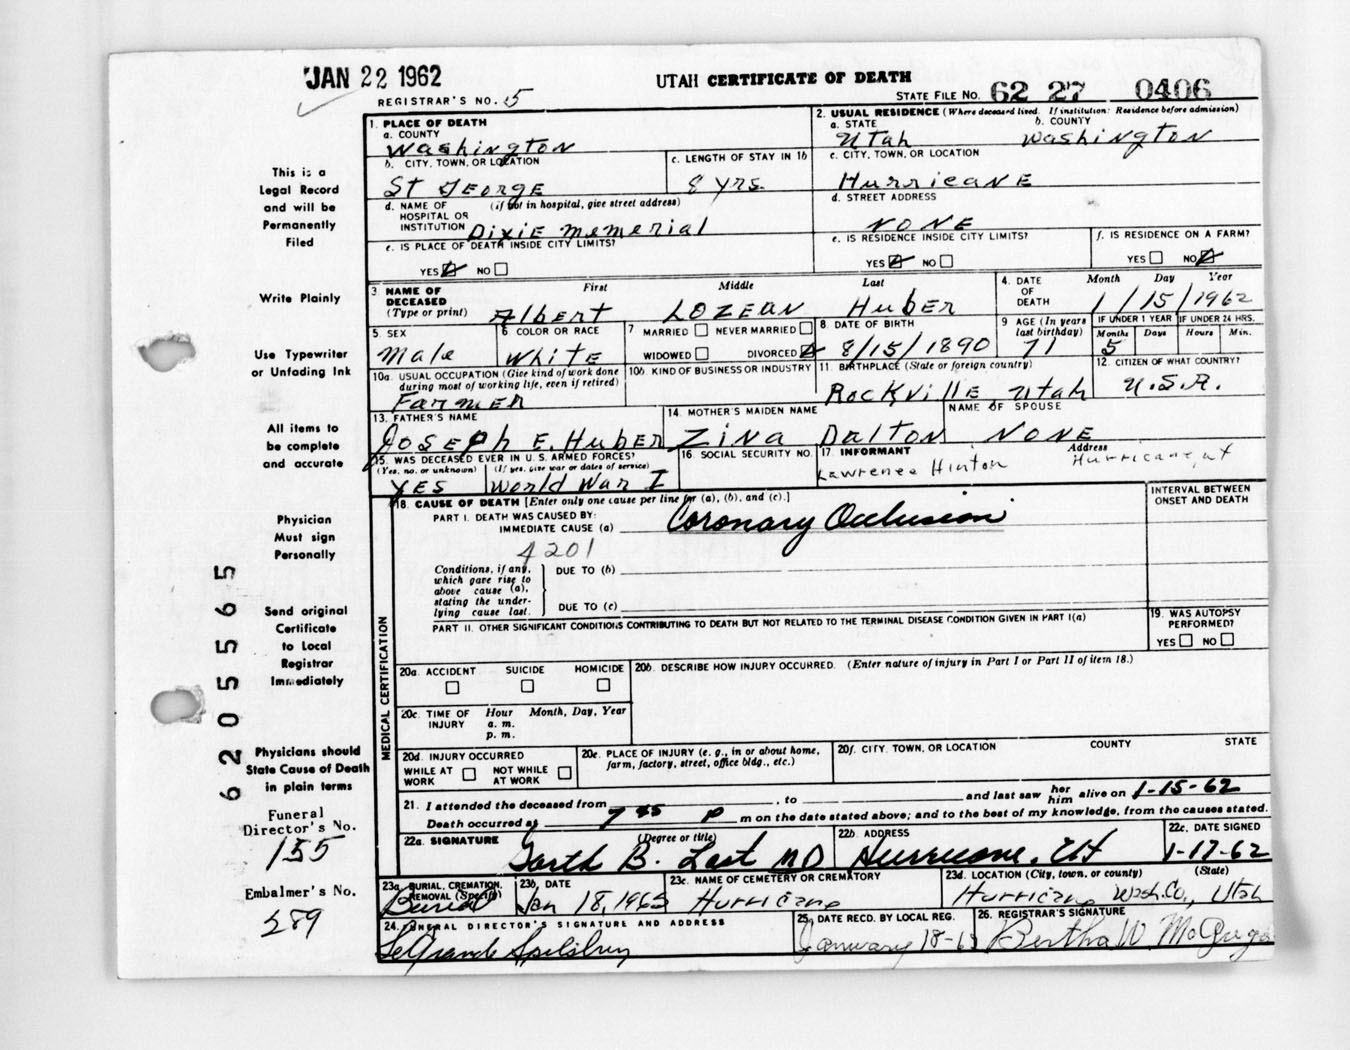 JAN 22 1962
UTAH CERTIFICATE OF DEATH
REGISTRAR'S NO. 5
STATE FILE NO. 62 27 0406
This is a
Legal Record
and will be
Permanently
Filed
Write Plainly
Use Typewriter
or Unfading Ink
All items to
be complete
and accurate
Physician
Must sign
Personally
Send original
Certificate
to Local
Registrar
Immediately
Physicians should
State Cause of Death
in plain terms
Funeral
Director's No.
155
Embalmer's No.
289
6205565
1. PLACE OF DEATH
a. COUNTY
Washington
2. USUAL RESIDENCE (Where deceased lived. If institution: Residence before admission)
a. STATE b. COUNTY
Utah Washington
b. CITY, TOWN, OR LOCATION
St George
c. LENGTH OF STAY IN 1b
8 yrs.
c. CITY, TOWN, OR LOCATION
Hurricane
d. NAME OF HOSPITAL OR INSTITUTION (if not in hospital, give street address)
Dixie Memerial
d. STREET ADDRESS
NONE
e. IS PLACE OF DEATH INSIDE CITY LIMITS?
YES NO
e. IS RESIDENCE INSIDE CITY LIMITS?
YES NO
f. IS RESIDENCE ON A FARM?
YES NO
3. NAME OF DECEASED (Type or print)
First Middle Last
Albert LOZEAN Huber
4. DATE OF DEATH Month Day Year
1/15/1962
5. SEX
Male
6 COLOR OR RACE
White
7 MARRIED NEVER MARRIED
WIDOWED DIVORCED
8. DATE OF BIRTH
8/15/1890
9 AGE (In years last birthday)
71
IF UNDER 1 YEAR IF UNDER 24 HRS.
Months Days Hours Min.
5
10a. USUAL OCCUPATION (Give kind of work done during most of working life, even if retired)
Farmer
10b. KIND OF BUSINESS OR INDUSTRY
11. BIRTHPLACE (State or foreign country)
Rockville, Utah
12. CITIZEN OF WHAT COUNTRY?
U.S.A.
13. FATHER'S NAME
Joseph E. Huber
14. MOTHER'S MAIDEN NAME
Zina Dalton
NAME OF SPOUSE
NONE
15. WAS DECEASED EVER IN U.S. ARMED FORCES?
(Yes, no, or unknown) (If yes, give war or dates of service)
YES World War I
16. SOCIAL SECURITY NO.
17. INFORMANT Address
Lawrence Hinton Hurricane, ut
MEDICAL CERTIFICATION
18. CAUSE OF DEATH [Enter only one cause per line for (a), (b), and (c).]
INTERVAL BETWEEN ONSET AND DEATH
PART I. DEATH WAS CAUSED BY:
IMMEDIATE CAUSE (a) Coronary Occlusion
4201
Conditions, if any, which gave rise to above cause (a), stating the underlying cause last.
DUE TO (b)
DUE TO (c)
PART II. OTHER SIGNIFICANT CONDITIONS CONTRIBUTING TO DEATH BUT NOT RELATED TO THE TERMINAL DISEASE CONDITION GIVEN IN PART I(a)
19. WAS AUTOPSY PERFORMED?
YES NO
20a. ACCIDENT SUICIDE HOMICIDE
20b. DESCRIBE HOW INJURY OCCURRED. (Enter nature of injury in Part I or Part II of item 18.)
20c. TIME OF INJURY Hour a. m. p. m. Month, Day, Year
20d. INJURY OCCURRED
WHILE AT WORK NOT WHILE AT WORK
20e. PLACE OF INJURY (e. g., in or about home, farm, factory, street, office bldg., etc.)
20f. CITY, TOWN, OR LOCATION COUNTY STATE
21. I attended the deceased from , to and last saw her him alive on 1-15-62
Death occurred at 7 55 P m on the date stated above; and to the best of my knowledge, from the causes stated.
22a. SIGNATURE (Degree or title)
Garth B. Last MD
22b. ADDRESS
Hurricane, Ut
22c. DATE SIGNED
1-17-62
23a. BURIAL, CREMATION, REMOVAL (Specify)
Burial
23b. DATE
Jan 18, 1962
23c. NAME OF CEMETERY OR CREMATORY
Hurricane
23d. LOCATION (City, town, or county) (State)
Hurricane Wash. Co., Utah
24. FUNERAL DIRECTOR'S SIGNATURE AND ADDRESS
LeGrande Spilsbury
25. DATE RECD. BY LOCAL REG.
January 18-62
26. REGISTRAR'S SIGNATURE
Bertha W McGregor